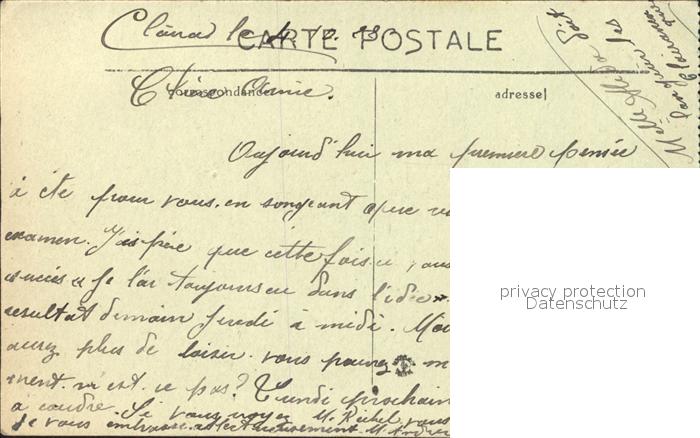 CARTE POSTALE
Correspondance
adresse
Chère Amie.
Aujourd'hui ma première pensée
a été pour vous. en songeant que
examen. J'espère que cette fois.ci vous
succès « Je l'ai toujours eu dans l'idée ».
resultat demain Jeudi à midi.
aurez plus de loisir vous pourrez
ment. n'est. ce pas? Lundi prochain
à coudre. Si vous voyez M. Reihel, vous
Je vous embrasse affectueusement. M.
privacy protection
Datenschutz